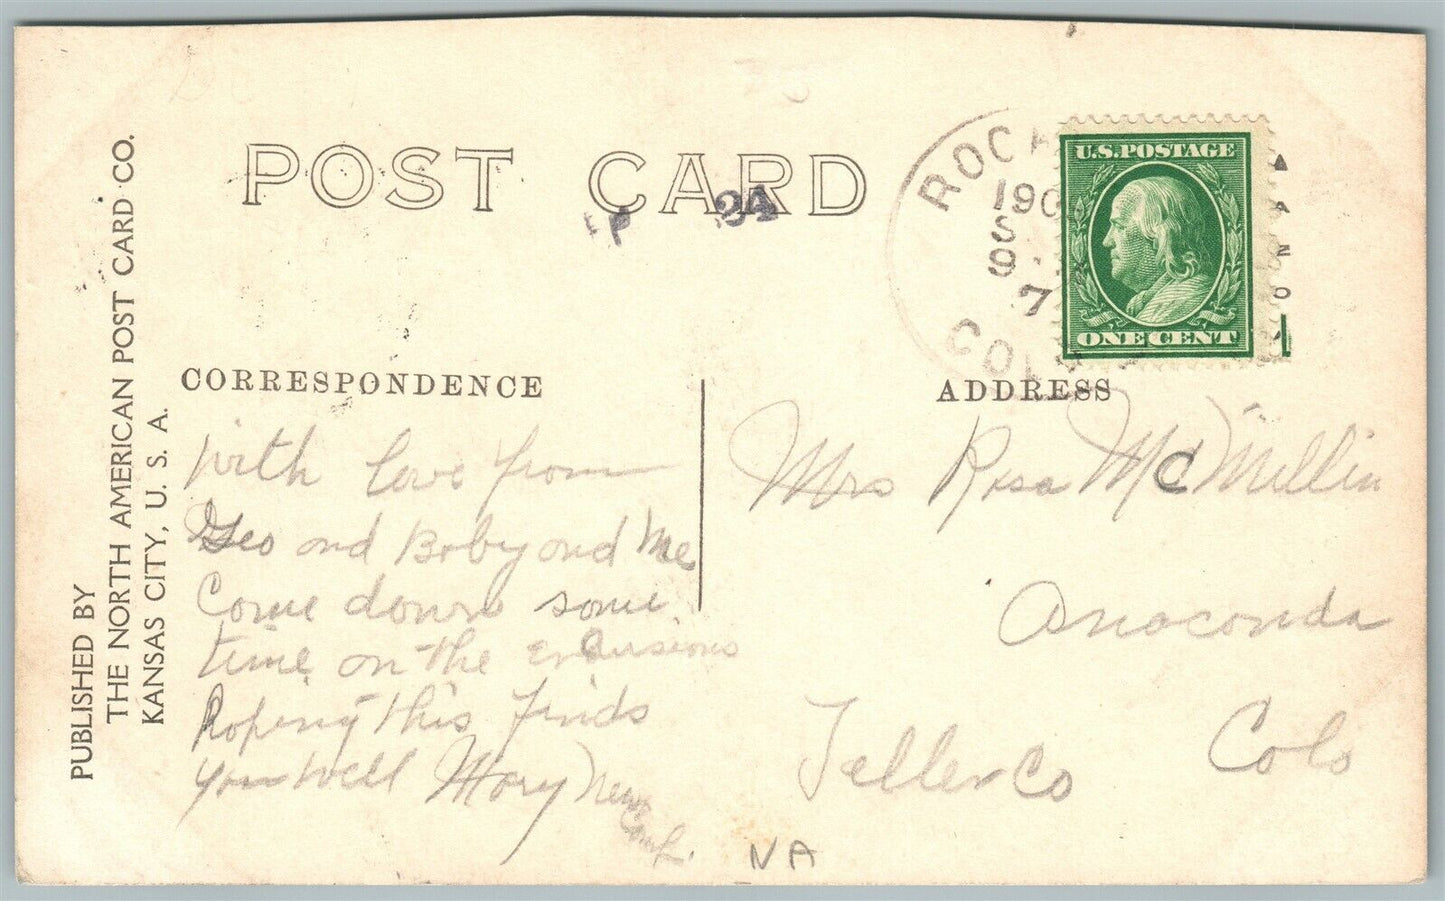 POST CARD
24
ROCK
190
S
9
7
COL
U.S.POSTAGE
ONE CENT
PUBLISHED BY
THE NORTH AMERICAN POST CARD CO.
KANSAS CITY, U. S. A.
CORRESPONDENCE
ADDRESS
With love from
Geo and Boby and Me
Come down some
time on the
Hoping this finds
you well Mary
Mrs Rosa McMillin
Anaconda
Teller Co Colo
NA